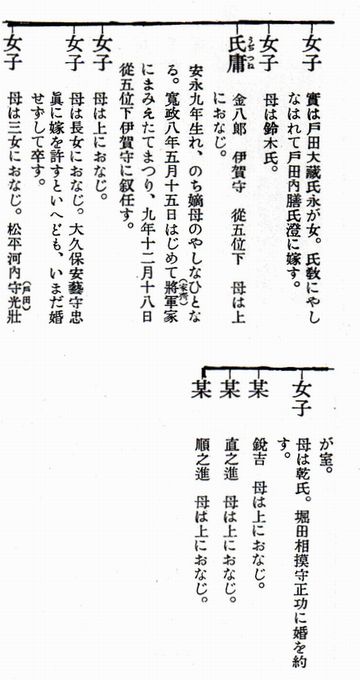 女子
實は戸田大藏氏永が女。氏敎にやし
なはれて戸田內膳氏澄に嫁す。
女子
母は鈴木氏。
氏庸
うぢつね
金八郎 伊賀守 從五位下 母は上
におなじ。
安永九年生れ、のち嫡母のやしなひとな
る。寬政八年五月十五日はじめて將軍家
(家齊)
にまみえたてまつり、九年十二月十八日
從五位下伊賀守に叙任す。
女子
母は上におなじ。
女子
母は長女におなじ。大久保安藝守忠
眞に嫁を許すといへども、いまだ婚
せずして卒す。
女子
母は三女におなじ。松平河內守光壯
(戸田)
が室。
女子
母は乾氏。堀田相摸守正功に婚を約
す。
某
銳吉 母は上におなじ。
某
直之進 母は上におなじ。
某
順之進 母は上におなじ。